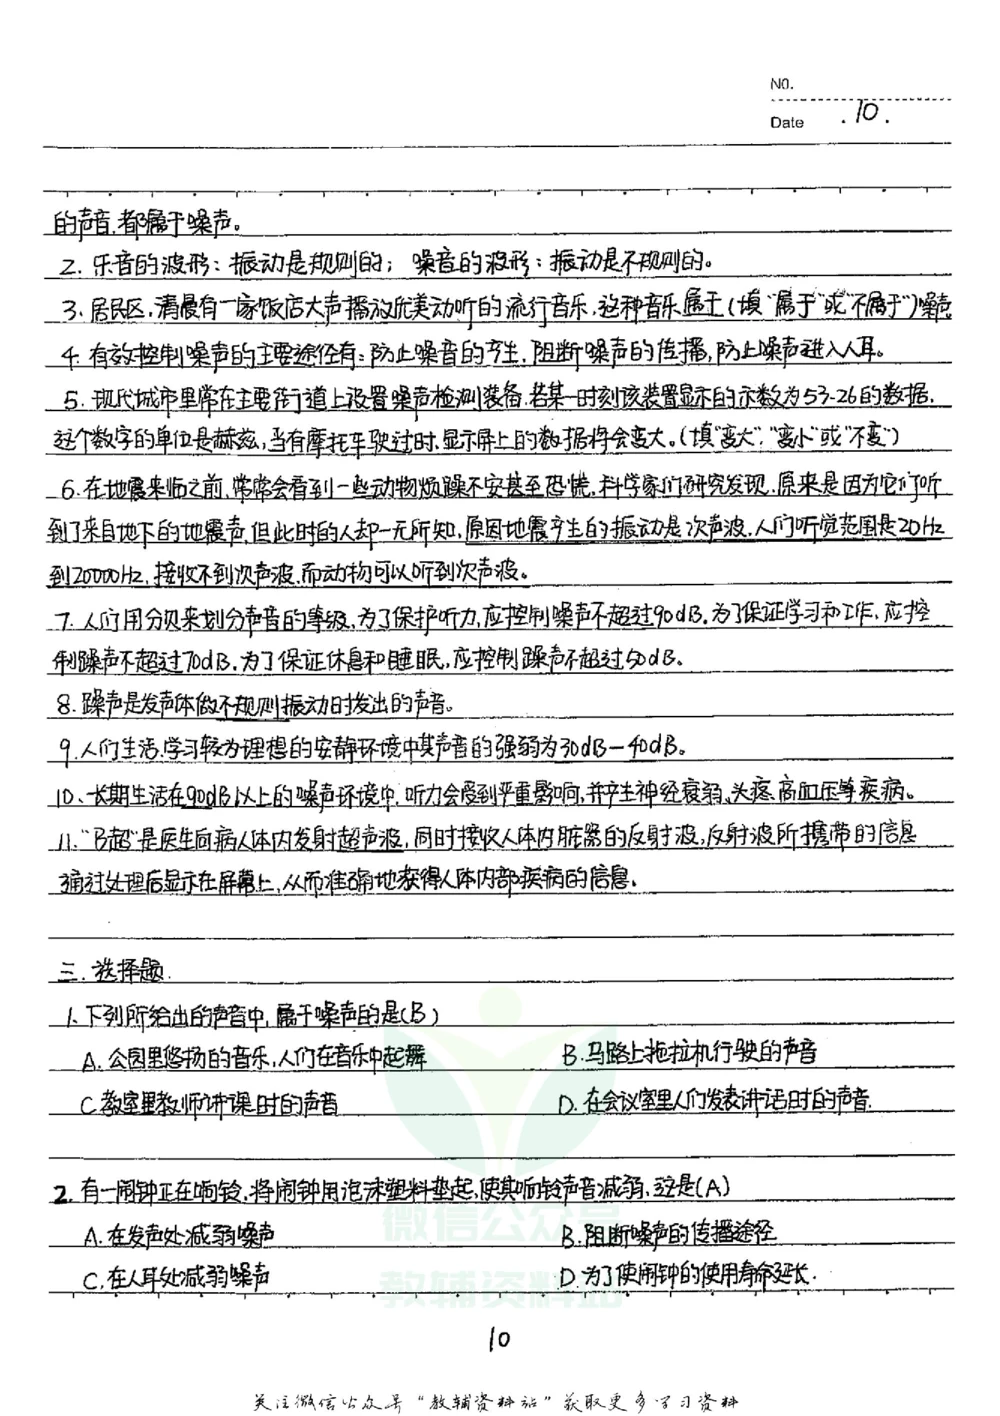 No.
Date .10.
的声音,都属于噪声。
2. 乐音的波形：振动是规则的；噪音的波形：振动是不规则的。
3. 居民区,清晨有一家饭店大声播放优美动听的流行音乐,这种音乐属于(填“属于”或“不属于”)噪声
4. 有效控制噪声的主要途径有：防止噪音的产生,阻断噪声的传播,防止噪声进入人耳。
5. 现代城市里常在主要街道上设置噪声检测装备.若某一时刻该装置显示的示数为53-26的数据,
这个数字的单位是赫兹,当有摩托车驶过时,显示屏上的数据将会变大。(填“变大”.“变小”或“不变”)
6. 在地震来临之前,常常会看到一些动物烦躁不安甚至恐慌,科学家们研究发现,原来是因为它们听
到了来自地下的地震声,但此时的人却一无所知,原因地震产生的振动是次声波,人们听觉范围是20Hz
到20000Hz,接收不到次声波,而动物可以听到次声波。
7. 人们用分贝来划分声音的等级,为了保护听力,应控制噪声不超过90dB.为了保证学习和工作,应控
制躁声不超过70dB.为了保证休息和睡眠,应控制躁声不超过50dB。
8. 躁声是发声体做不规则振动时发出的声音。
9. 人们生活.学习较为理想的安静环境中其声音的强弱为30dB—40dB。
10、长期生活在90dB以上的噪声环境中,听力会受到严重影响,并产生神经衰弱、头疼、高血压等疾病。
11. “B超”是医生向病人体内发射超声波,同时接收人体内脏器的反射波,反射波所携带的信息
通过处理后显示在屏幕上,从而准确地获得人体内部疾病的信息。
三. 选择题.
1. 下列所给出的声音中,属于噪声的是(B)
A. 公园里悠扬的音乐,人们在音乐中起舞 B. 马路上拖拉机行驶的声音
C. 教室里教师讲课时的声音 D. 在会议室里人们发表讲话时的声音.
2. 有一闹钟正在响铃,将闹钟用泡沫塑料垫起,使其响铃声音减弱,这是(A)
A. 在发声处减弱噪声 B. 阻断噪声的传播途径
C. 在人耳处减弱噪声 D. 为了使闹钟的使用寿命延长.
微信公众号
教辅资料站
10
关注微信公众号“教辅资料站”获取更多学习资料